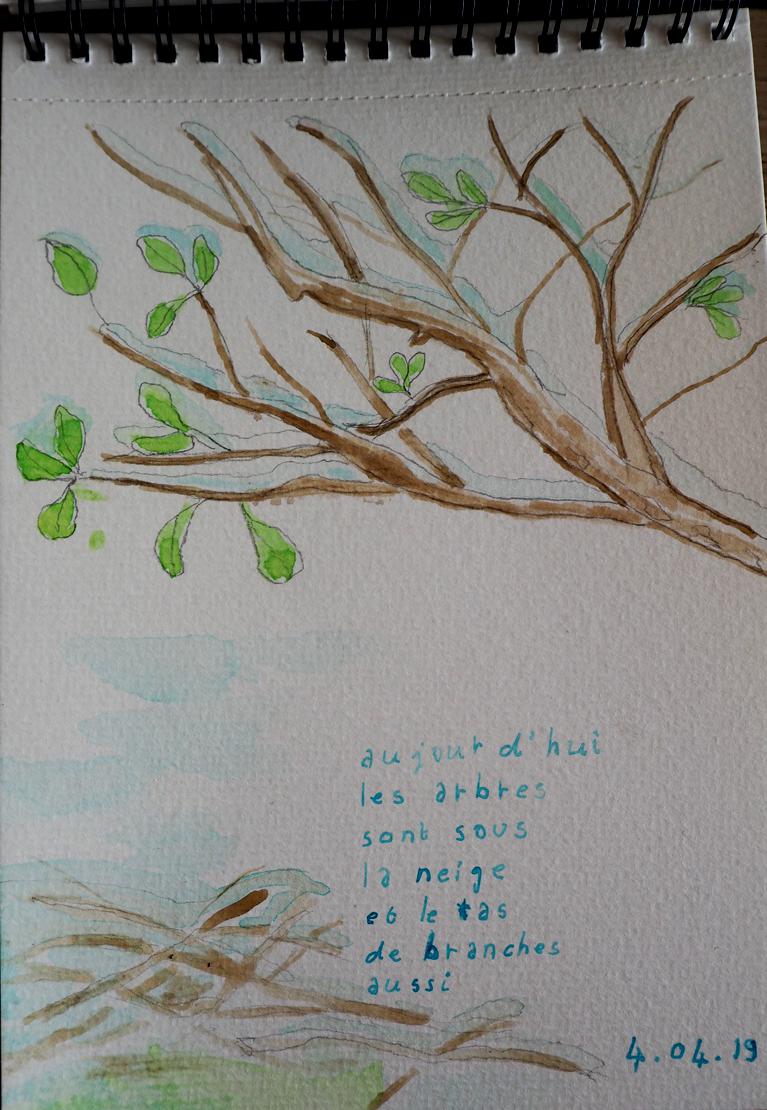 aujourd'hui
les arbres
sont sous
la neige
et le tas
de branches
aussi
4.04.19